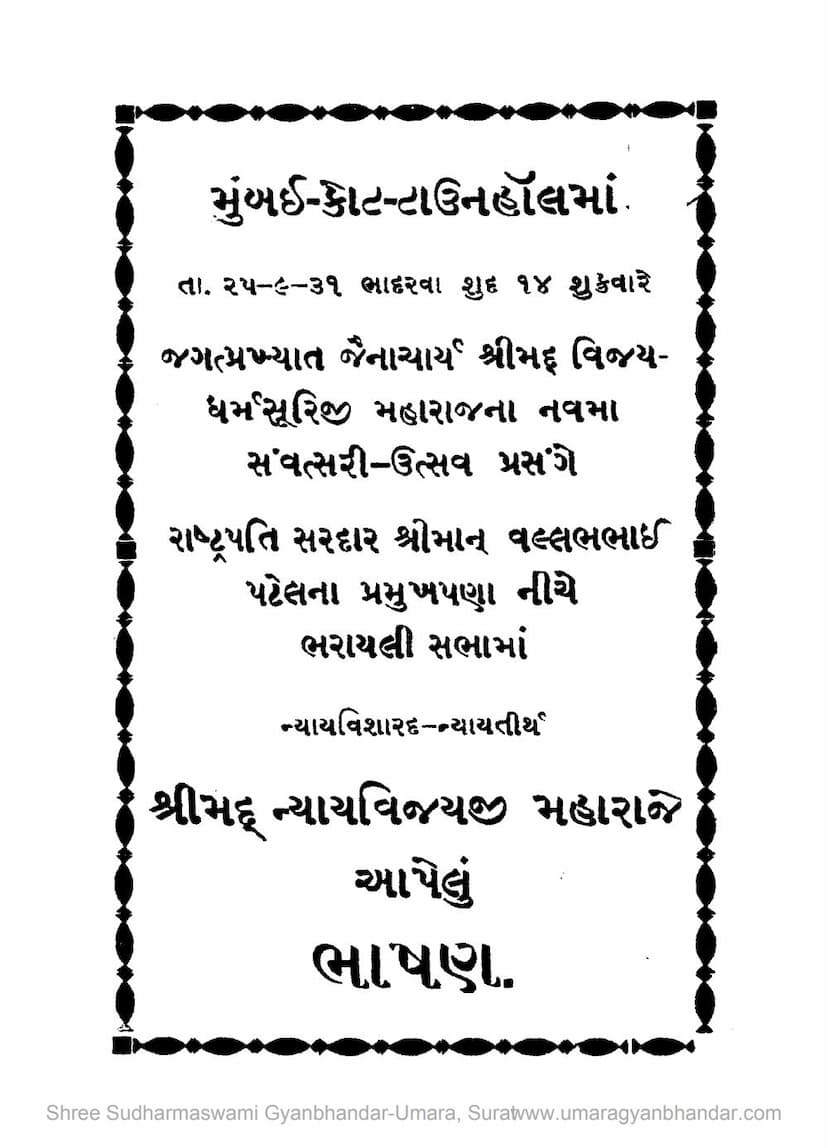 મુંબઈ-કોટ-ટાઉનહૉલમાં.
તા. ૨૫–૯–૩૧ ભાદરવા શુદ ૧૪ શુક્રવારે
જગત્પ્રખ્યાત જૈનાચાર્ય શ્રીમદ્ વિજય-
ધર્મસૂરિજી મહારાજના નવમા
સંવત્સરી–ઉત્સવ પ્રસંગે
રાષ્ટ્રપતિ સરદાર શ્રીમાન્ વલ્લભભાઈ
પટેલના પ્રમુખપણા નીચે
ભરાયલી સભામાં
ન્યાયવિશારદ–ન્યાયતીર્થ
શ્રીમદ્ ન્યાયવિજયજી મહારાજે
આપેલું
ભાષણ.
Shree Sudharmaswami Gyanbhandar-Umara, Surat www.umaragyanbhandar.com